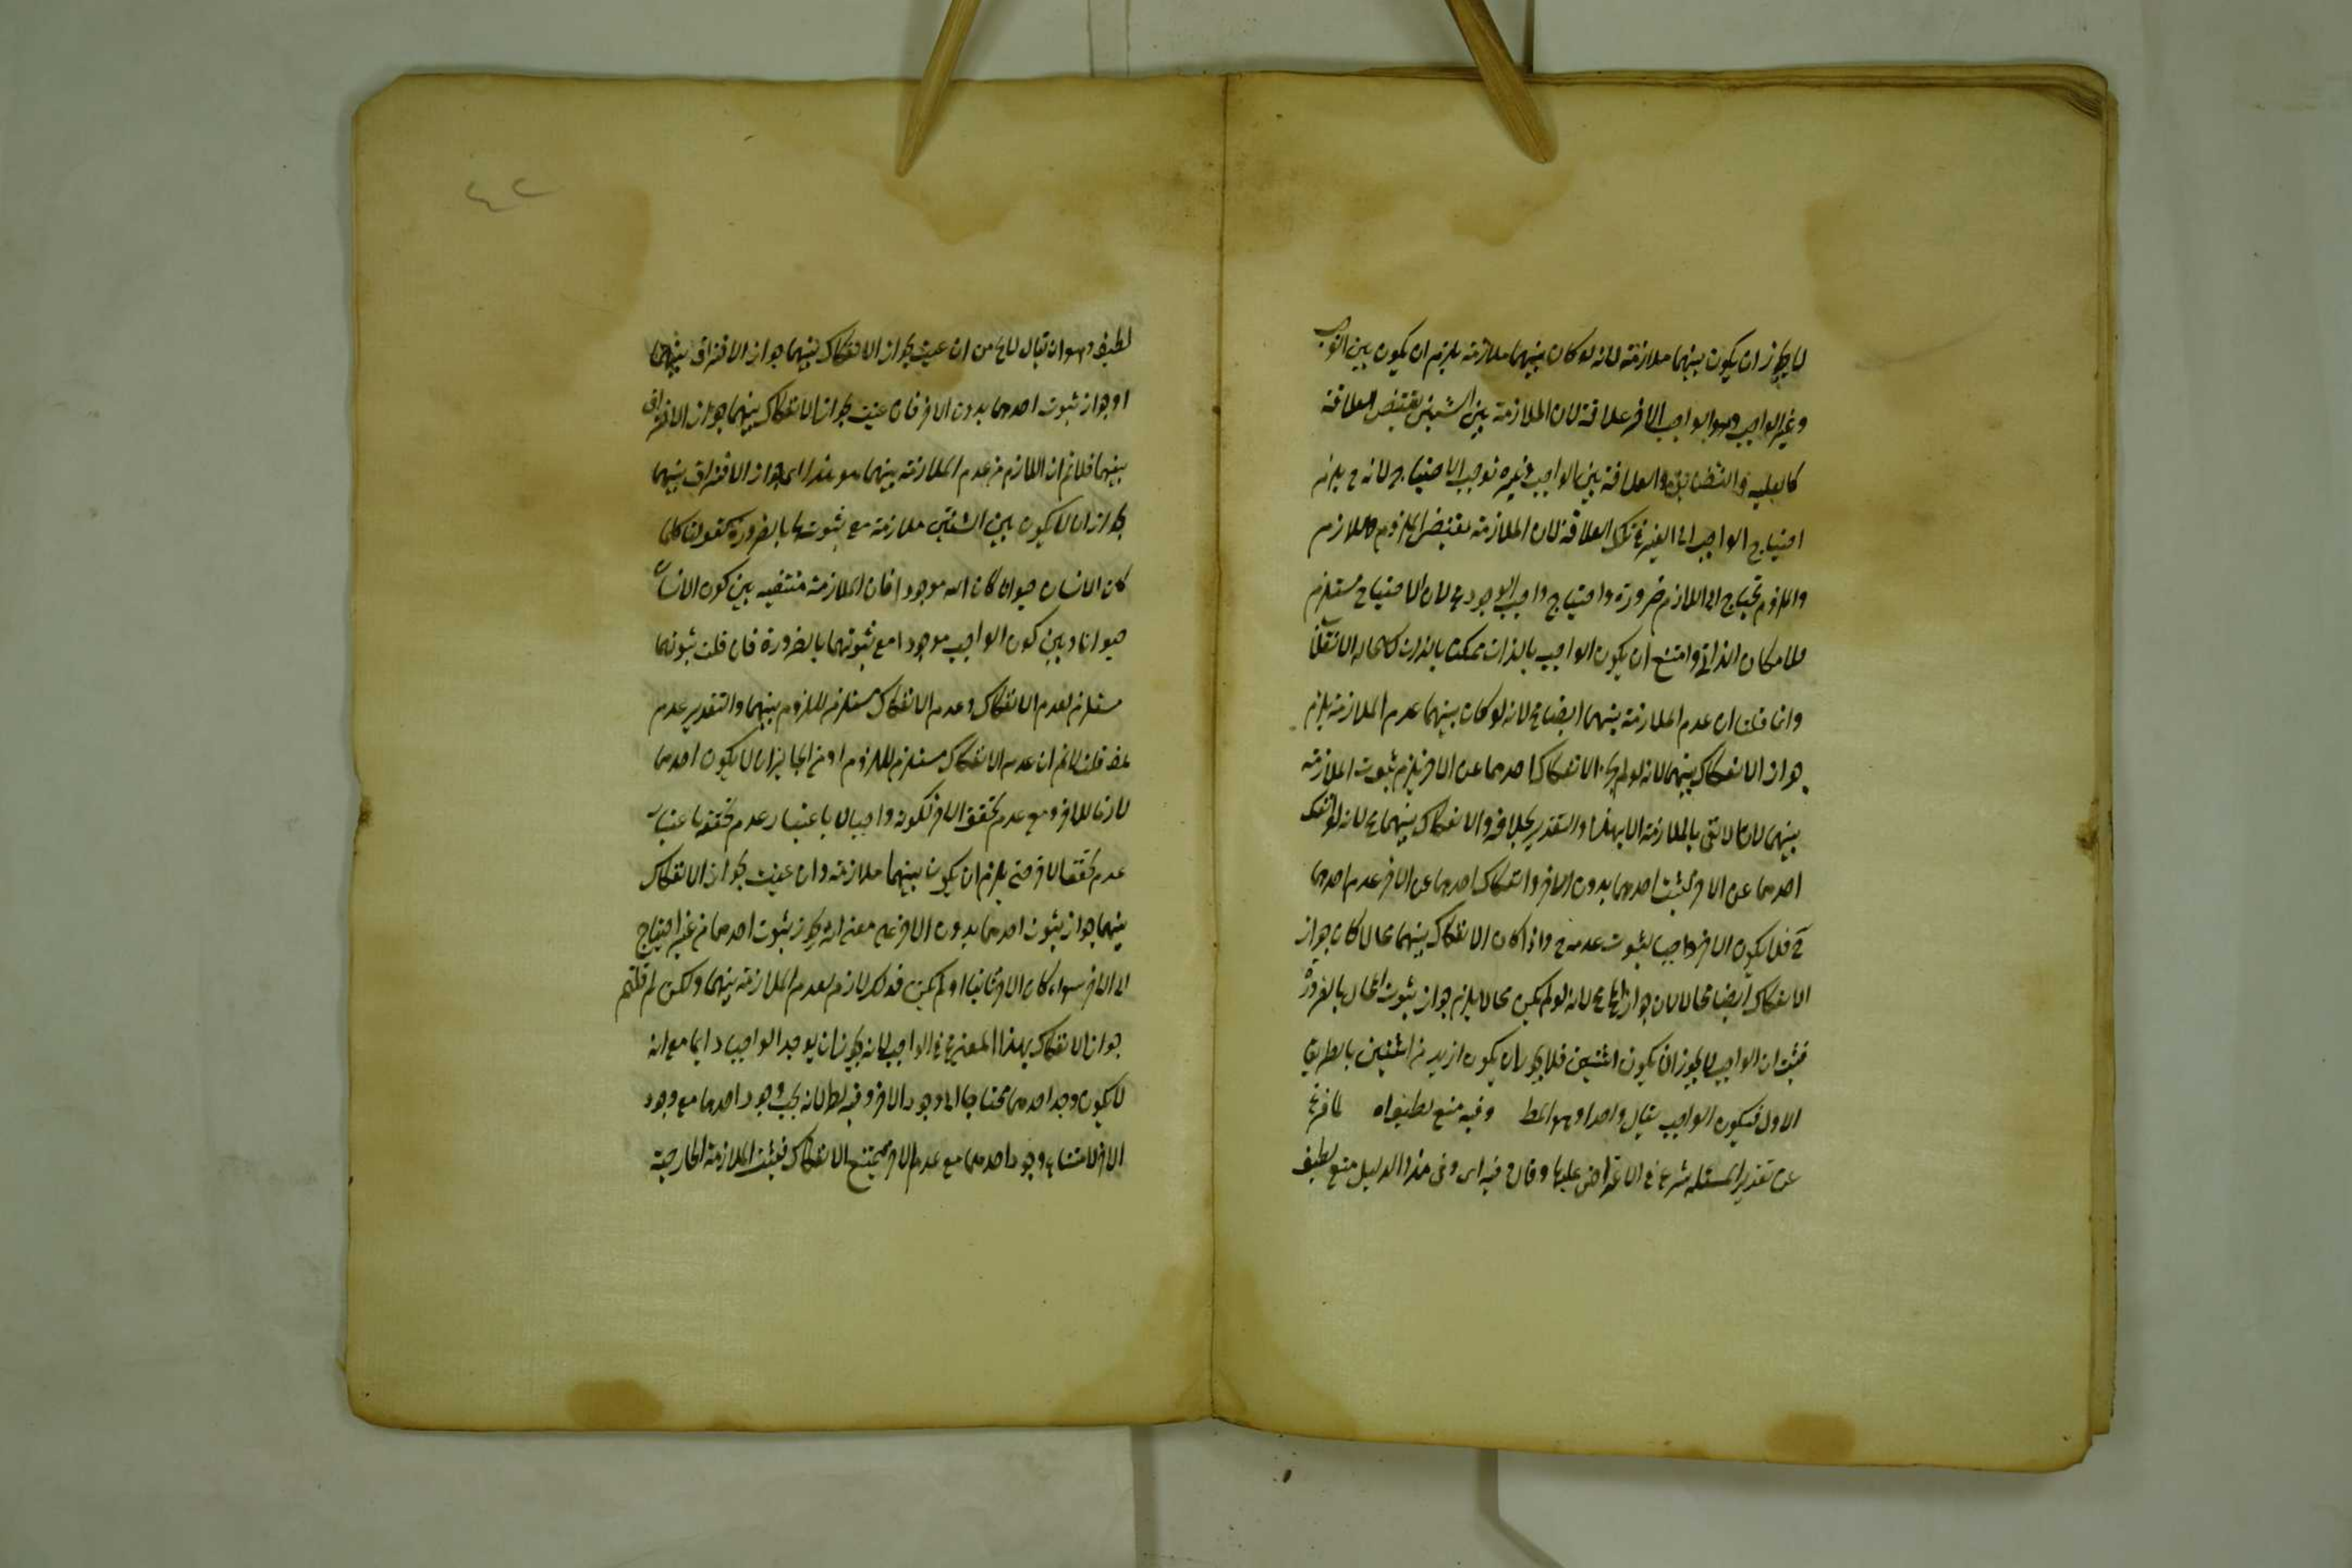 لا يجوز ان يكون بينهما ملازمة لانه لو كان بينهما ملازمة يلزم ان يكون بين الواجب
وغير الواجب وهو الواجب الاخر علاقة لان الملازمة بين الشيئين يقتضى العلاقة
كالعلية والتضايف والعلاقة بين الواجب وغيره توجب الاحتياج لانه ح يلزم
احتياج الواجب الى الغير فى تلك العلاقة لان الملازمة يقتضى الملزوم واللازم
والملزوم يحتاج الى اللازم ضرورة واحتياج واجب الوجود مح لان الاحتياج مستلزم
للامكان الذاتى وامتنع ان يكون الواجب بالذات ممكنا بالذات لاستحالة الانقلاب
وانما قلنا ان عدم الملازمة بينهما ايضا مح لانه لو كان بينهما عدم الملازمة يلزم
جواز الانفكاك بينهما لانه لو لم يجز الانفكاك احدهما عن الاخر يلزم ثبوت الملازمة
بينهما لانا لا نعنى بالملازمة الا هذا والتقدير بخلافه والانفكاك بينهما مح لانه لو انفك
احدهما عن الاخر لثبت احدهما بدون الاخر وانفكاك احدهما عن الاخر عدم احدهما
ح فلا يكون الاخر واجبا لثبوت عدمه ح واذا كان الانفكاك بينهما محالا كان جواز
الانفكاك ايضا محالا لان جواز المح مح لانه لو لم يكن محالا يلزم جواز ثبوت المحال بالضرورة
فثبت ان الواجب لا يجوز ان يكون اثنين فلا يجوز ان يكون ازيد من اثنين بالطريق
الاول فيكون الواجب تعالى واحدا وهو المط وفيه منع لطيف اه لما فرغ
عن تقدير المسئلة شرع فى الاعتراض عليها وقال فيه اى وفى هذا الدليل منع لطيف
٤٢
لطيف وهو ان يقال لا يخ من ان عنيت بجواز الانفكاك بينهما جواز الافتراق بينهما
او جواز ثبوت احدهما بدون الاخر فان عنيت بجواز الانفكاك بينهما جواز الافتراق
بينهما فلا نم ان اللازم من عدم الملازمة بينهما هو هذا اى جواز الافتراق بينهما
بجواز ان لا يكون بين الشيئين ملازمة مع ثبوتهما بالضرورة كقولنا كلما
كان الانسان حيوانا كان الله موجودا فان الملازمة منتفية بين كون الانسان
حيوانا وبين كون الواجب موجودا مع ثبوتهما بالضرورة فان قلت ثبوتهما
مستلزم لعدم الانفكاك وعدم الانفكاك مستلزم للزوم بينهما والتقدير عدم
قلت لا نم ان عدم الانفكاك مستلزم للزوم اذ من الجايز ان لا يكون احدهما
لازما للاخر ومع عدم تحقق الاخر لكونه واجبا لا باعتبار عدم تحققه باعتبار
عدم تحقق الاخر حتى يلزم ان يكون بينهما ملازمة وان عنيت بجواز الانفكاك
بينهما جواز ثبوت احدهما بدون الاخر على معنى انه يجوز ثبوت احدهما من غير احتياج
الى الاخر سواء كان الاخر ثابتا او لم يكن فذلك لازم لعدم الملازمة بينهما ولكن لم قلتم
جواز الانفكاك بهذا المعنى مح فى الواجب لانه يجوز ان يوجد الواجب دايما مع انه
لا يكون وجود احدهما محتاجا الى وجود الاخر وفيه بطلانه يجب وجود احدهما مع وجود
الاخر لامتناع وجود احدهما مع عدم الاخر فيمتنع الانفكاك فيثبت الملازمة الخارجية